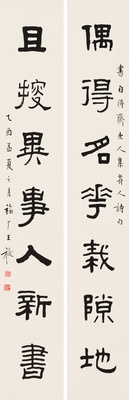 偶得名花栽隙地
書自得齋老人集昔人詩句
且搜異事入新書
乙酉孟夏之月福厂王禔